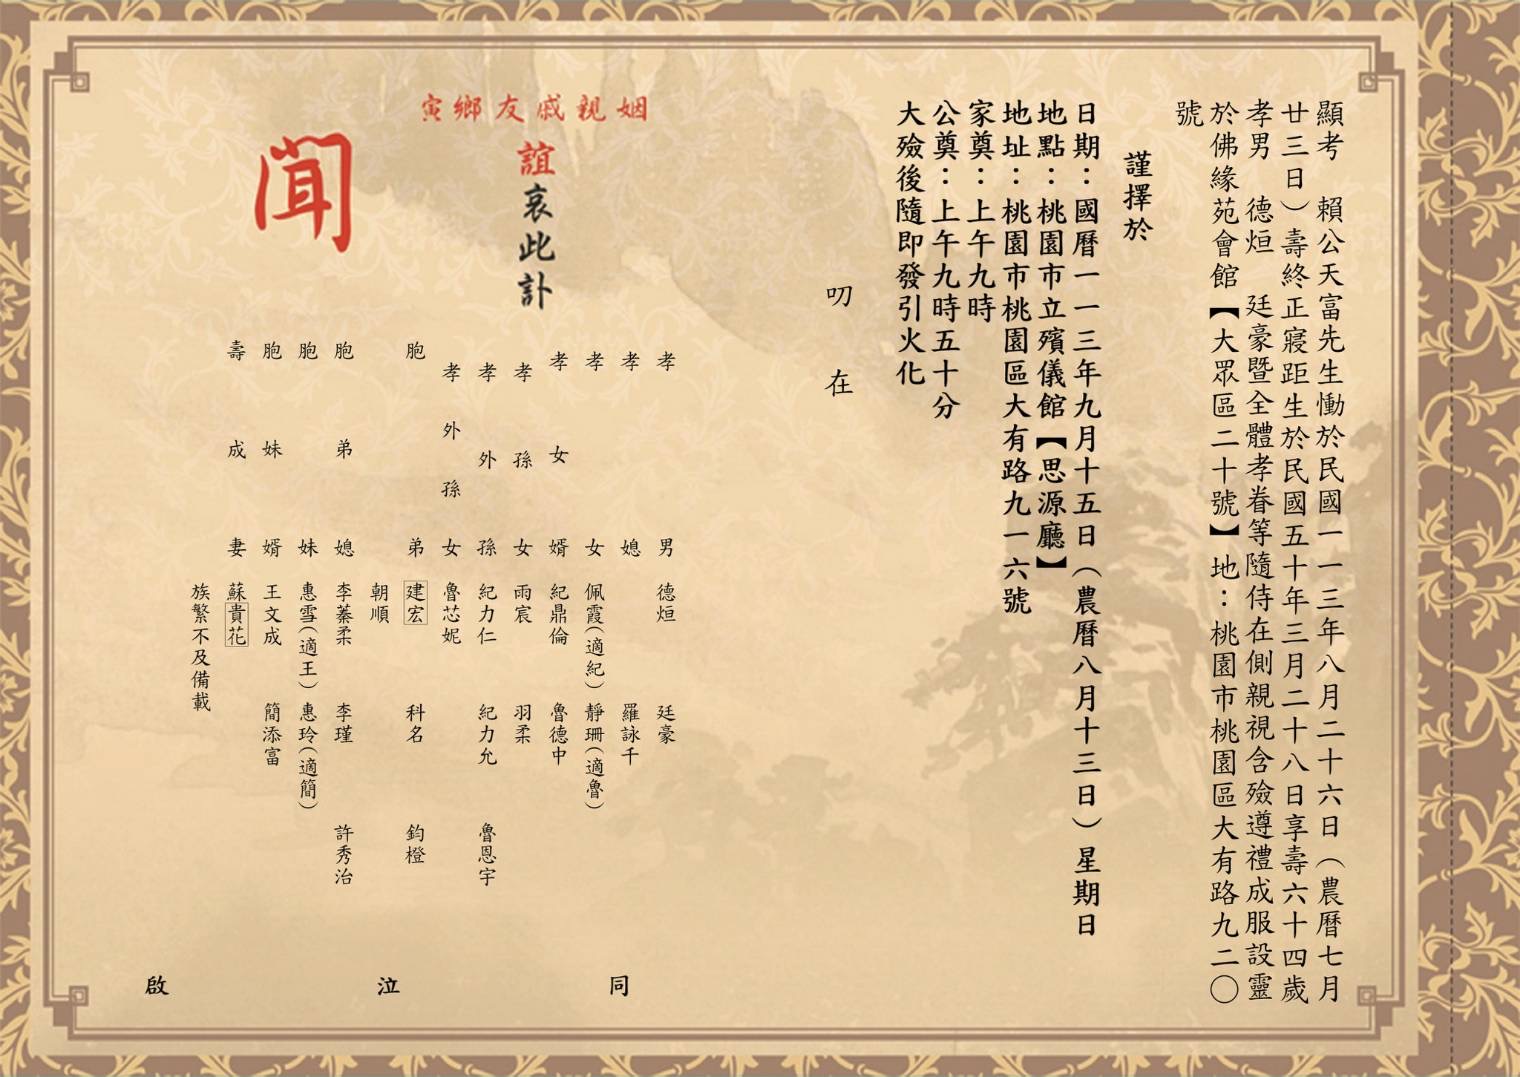 顯考　賴公天富先生慟於民國一一三年八月二十六日（農曆七月
廿三日）壽終正寢距生於民國五十年三月二十八日享壽六十四歲
孝男　德烜　廷豪暨全體孝眷等隨侍在側親視含殮遵禮成服設靈
於佛緣苑會館【大眾區二十號】地：桃園市桃園區大有路九二〇
號
謹擇於
日期：國曆一一三年九月十五日（農曆八月十三日）星期日
地點：桃園市立殯儀館【思源廳】
地址：桃園市桃園區大有路九一六號
家奠：上午九時
公奠：上午九時五十分
大殮後隨即發引火化
叨在
姻親戚友鄉寅
誼哀此訃
聞
孝男　德烜　廷豪
孝媳　羅詠千
孝女　佩霞（適紀）靜珊（適魯）
孝女婿　紀鼎倫　魯德中
孝孫女　雨宸　羽柔
孝外孫　紀力仁　紀力允　魯恩宇
孝外孫女　魯芯妮
胞弟　建宏　科名　鈞橙
朝順
胞弟媳　李蓁柔　李瑾　許秀治
胞妹　惠雪（適王）惠玲（適簡）
胞妹婿　王文成　簡添富
壽成妻　蘇貴花
族繁不及備載
同泣啟